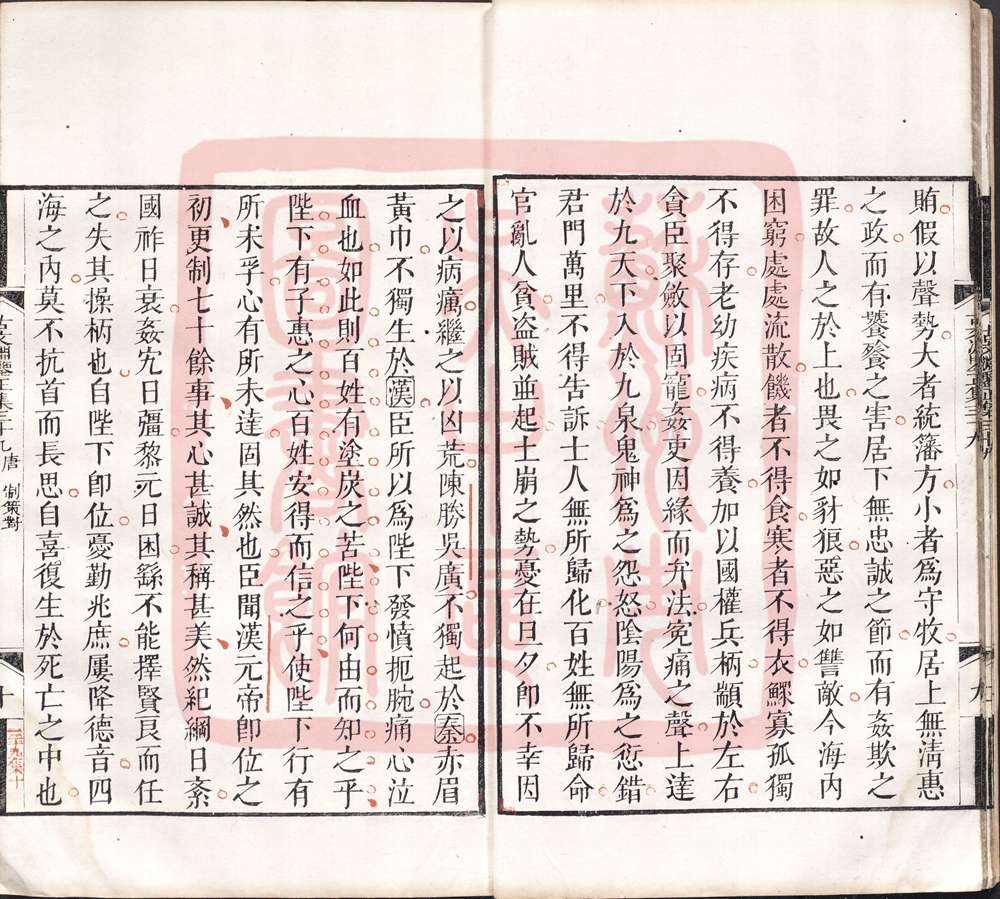 賄假以聲勢大者統籓方小者爲守牧居上無淸惠
之政而有饕餮之害居下無忠誠之節而有姦欺之
罪故人之於上也畏之如豺狼惡之如讐敵今海內
困窮處處流散饑者不得食寒者不得衣鰥寡孤獨
不得存老幼疾病不得養加以國權兵柄顓於左右
貪臣聚斂以固寵姦吏因緣而弁法寃痛之聲上達
於九天下入於九泉鬼神爲之怨怒陰陽爲之愆錯
君門萬里不得告訴士人無所歸化百姓無所歸命
官亂人貧盜賊並起土崩之勢憂在旦夕卽不幸因
之以病癘繼之以凶荒陳勝吳廣不獨起於秦赤眉
黃巾不獨生於漢臣所以爲陛下發憤扼腕痛心泣
血也如此則百姓有塗炭之苦陛下何由而知之乎
陛下有子惠之心百姓安得而信之乎使陛下行有
所未孚心有所未達固其然也臣聞漢元帝卽位之
初更制七十餘事其心甚誠其稱甚美然紀綱日紊
國祚日衰姦宄日彊黎元日困繇不能擇賢良而任
之失其操柄也自陛下卽位憂勤兆庶屢降德音四
海之內莫不抗首而長思自喜復生於死亡之中也
古文淵鑒正集三十九 唐 制策對
十
三十九集十